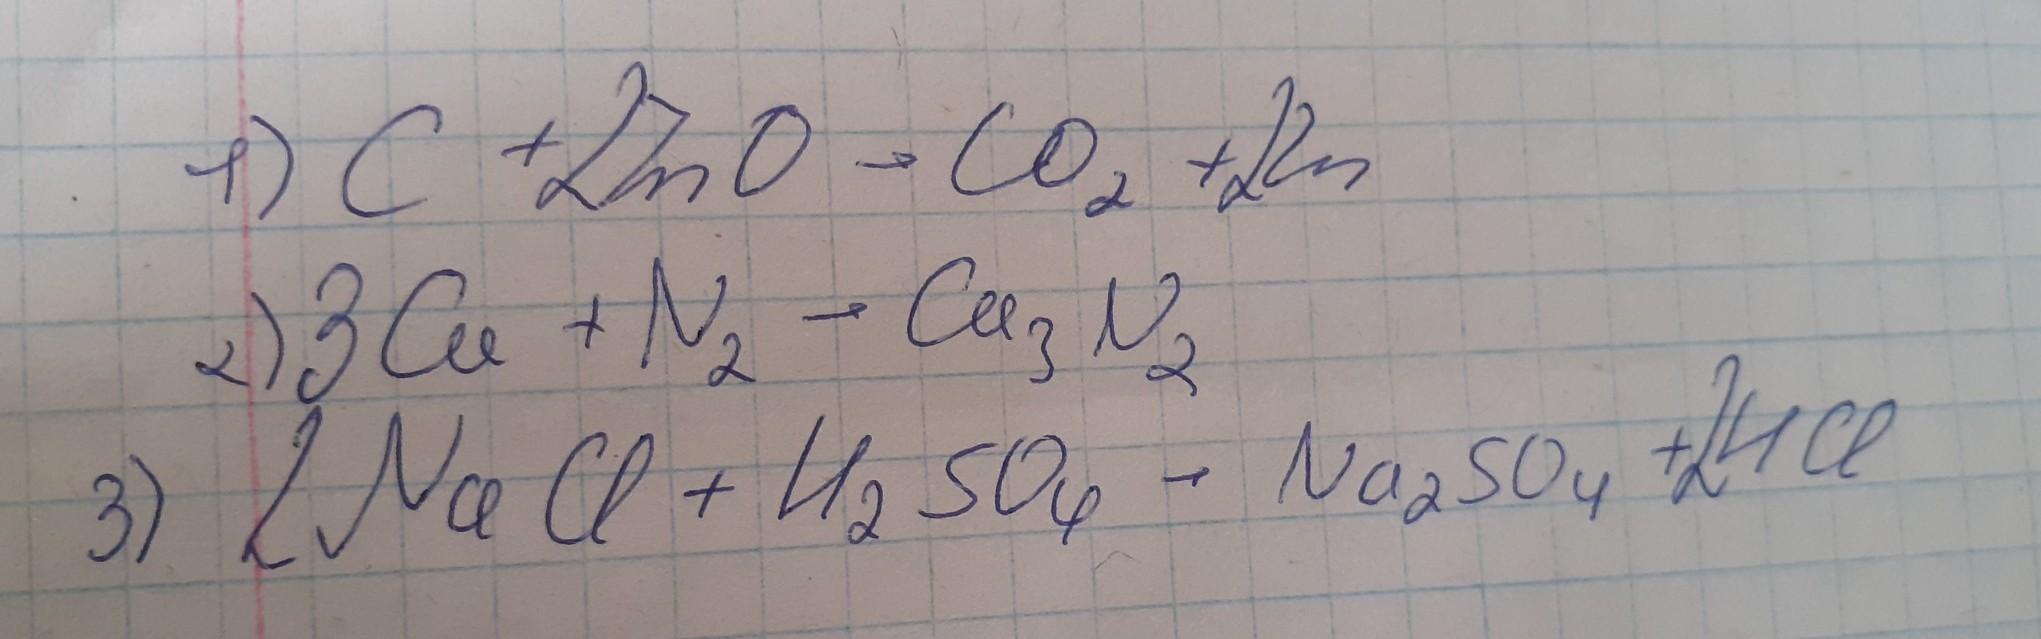 1) C + 2ZnO → CO₂ + 2Zn
2) 3Ca + N₂ → Ca₃N₂
3) 2NaCl + H₂SO₄ → Na₂SO₄ + 2HCl